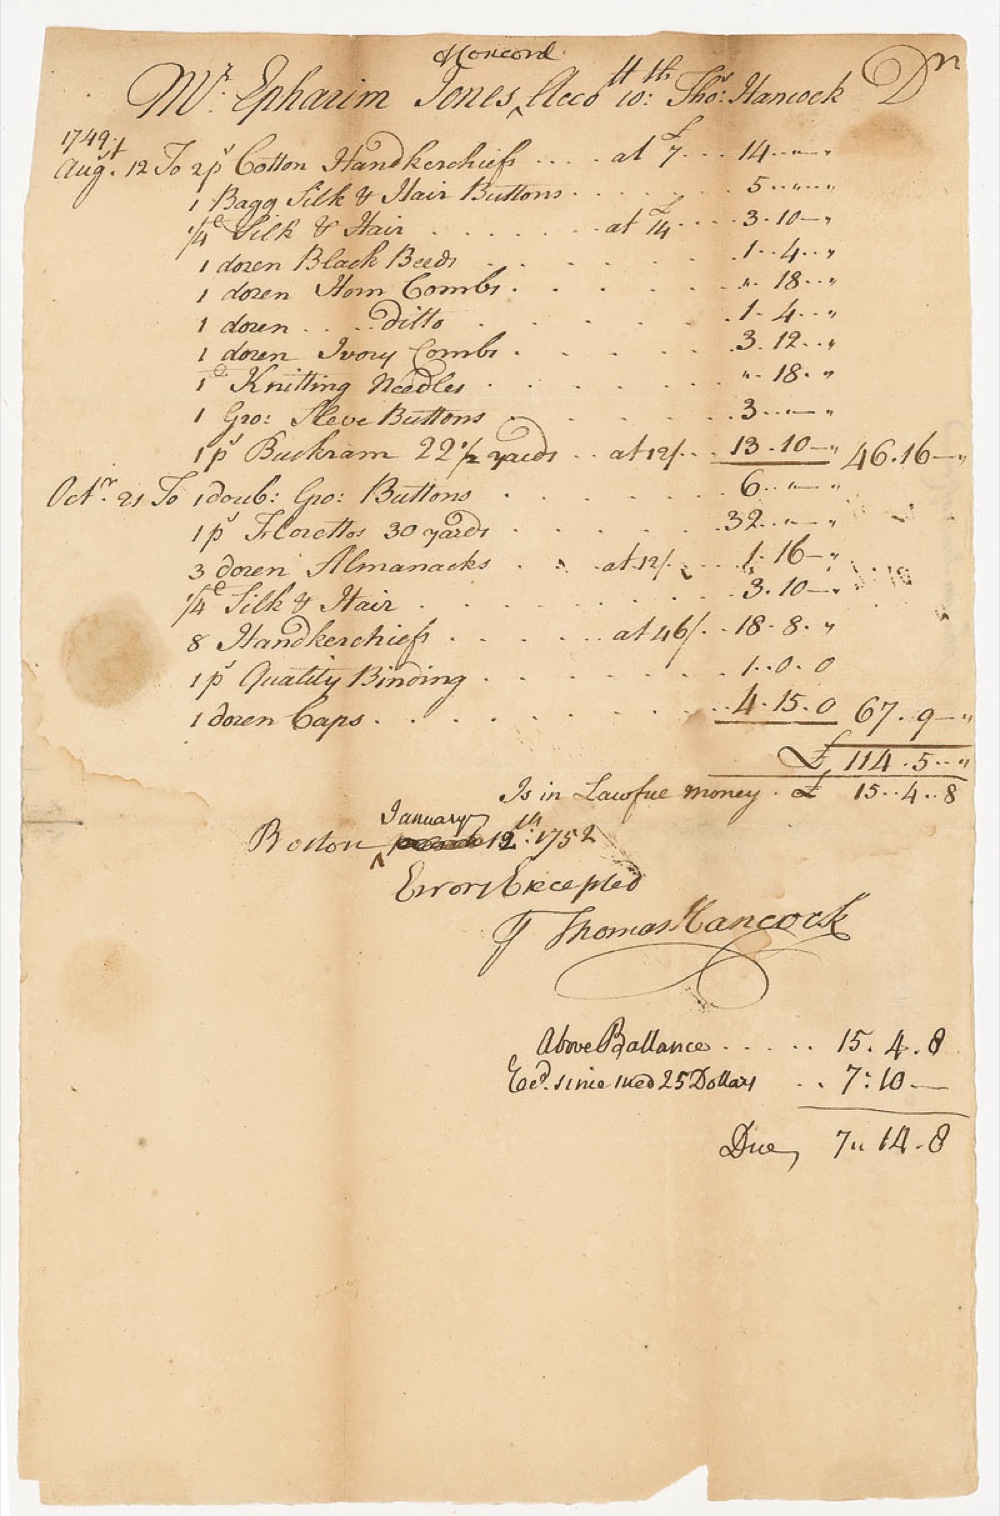 Concord
Mr. Epharim Jones, Acco tt wth: Thos: Hancock Dr
1749.
Augt. 12 To 2 ps Cotton Handkerchiefs .... at £7 ... 14 .. " .. "
1 Bagg Silk & Hair Buttons ... 5 .. " .. "
1/4 e Silk & Hair ... at £14 ... 3 . 10 - "
1 dozen Black Beeds ... 1 .. 4 .. "
1 dozen Horn Combs ... " . 18 .. "
1 dozen .. ditto ... 1 . 4 .. "
1 dozen Ivory Combs ... 3 . 12 .. "
1 e Knitting Needles ... " . 18 . "
1 Gro: Sleve Buttons ... 3 .. " - "
1 ps Buckram 22 1/2 yards .. at 12/ .. 13 . 10 - " 46 . 16 - "
Octr. 21 To 1 doub: Gro: Buttons ... 6 .. " - "
1 ps Florettos 30 yards ... 32 .. " - "
3 dozen Almanacks ... at 12/ ... 1 . 16 - "
1/4 e Silk & Hair ... 3 . 10 - "
8 Handkerchiefs .... at 46/ .. 18 . 8 . "
1 ps Quality Binding ... 1 .. 0 . 0
1 dozen Caps ... 4 . 15 . 0 67 . 9 - "
£ 114 . 5 .. "
Is in Lawfue money . £ 15 .. 4 .. 8
January
Boston ^ 12th: 1752
Errors Excepted
Thomas Hancock
Above Ballance ..... 15 . 4 . 8
since 25 Dollars .. 7 : 10 -
Due, 7 " 14 . 8